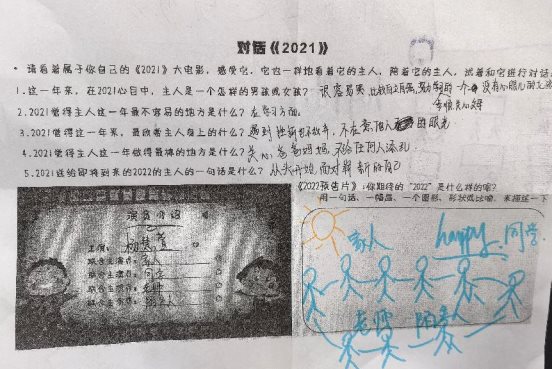 对话《2021》
· 请看着属于你自己的《2021》大电影，感受它，它也一样地看着它的主人，陪着它的主人，试着和它进行对话。
1.这一年来，在2021心目中，主人是一个怎样的男孩或女孩？很容易哭 比较自立自强 一个 没有心眼儿
会很关心
2.2021觉得主人这一年最不容易的地方是什么？在学习方面。
3.2021觉得这一年来，最欣赏主人身上的什么？遇到挫折也不放弃，不在意别人的眼光
4.2021觉得主人这一年做得最棒的地方是什么？关心爸爸妈妈，不给任何人添乱。
5.2021送给即将到来的2022的主人的一句话是什么？从头开始，面对新的自己
《2022预告片》：你期待的“2022”是什么样的呢？
用一句话、一幅画、一个图形、形状或比喻，来描述一下
演员介绍
主演：
联合主演：家人
联合主演：同学
联合主演：老师
联合主演：陌生人
家人 happy 同学
老师 陌生人